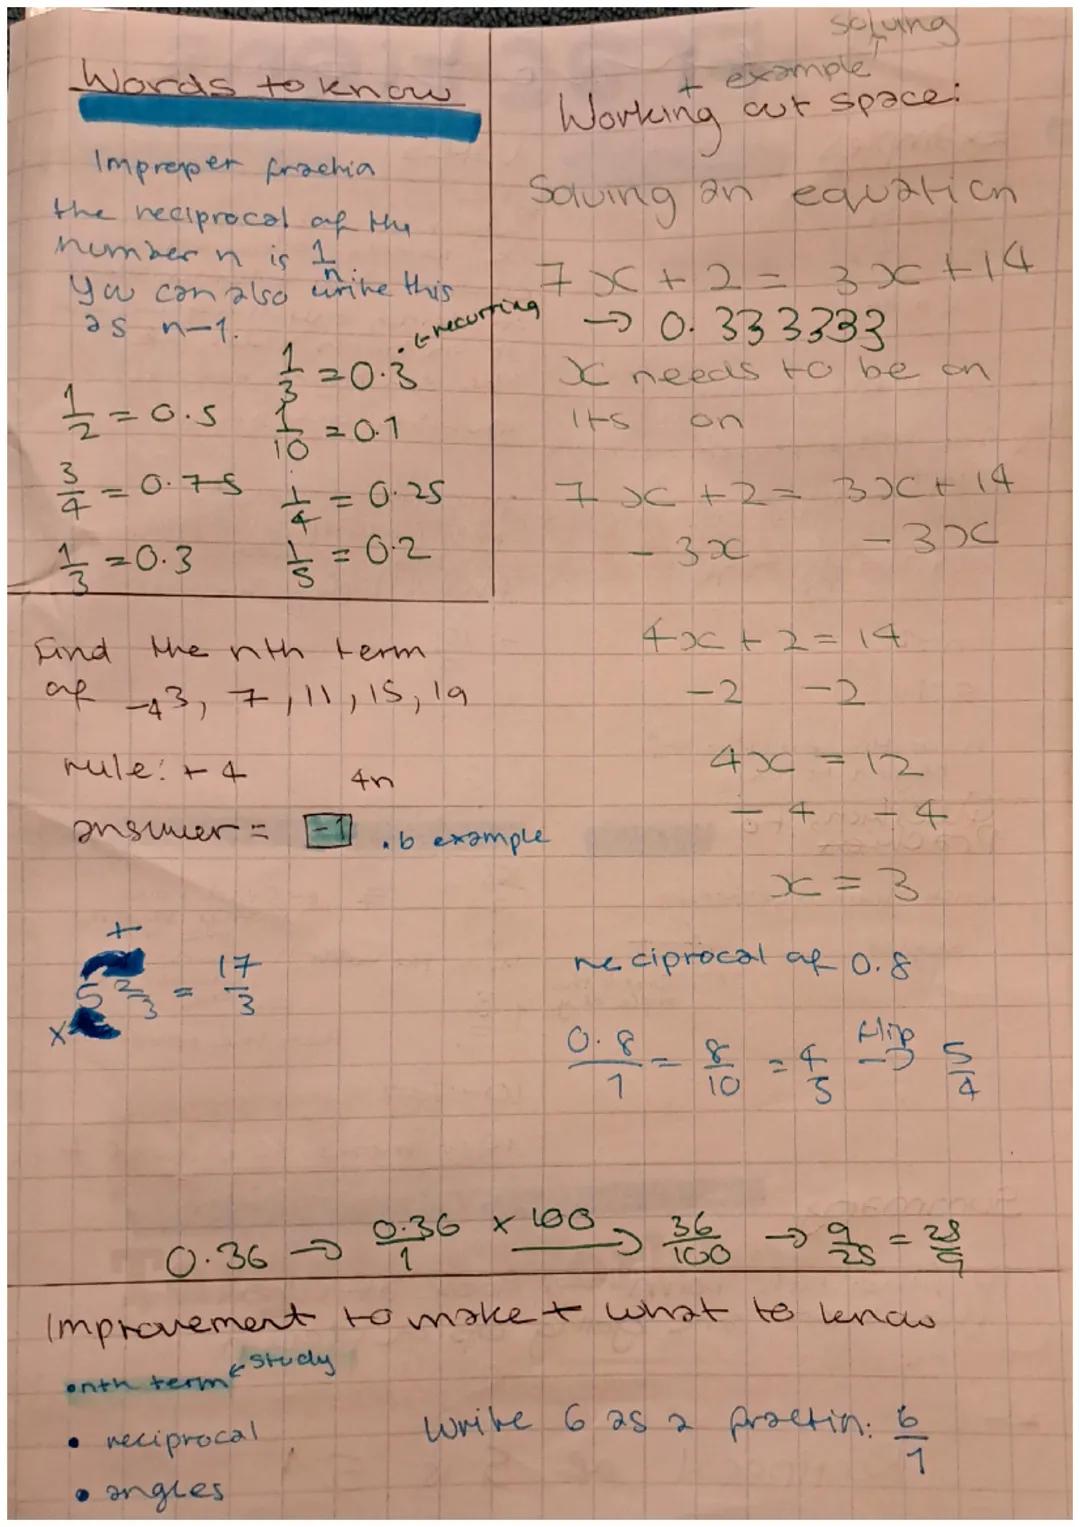 Words to know
Improper fraction
the reciprocal of the
number n is 1/n.
You can also write this
as n-1.
1/3 = 0.3̇ ← recurring
1/2 = 0.5
1/10 = 0.1
3/4 = 0.75
1/4 = 0.25
1/3 = 0.3
1/5 = 0.2
solving
+ example
Working out space:
Solving an equation
7x + 2 = 3x + 14
→ 0.333333
x needs to be on
its on
7x + 2 = 3x + 14
- 3x - 3x
4x + 2 = 14
-2 -2
4x = 12
÷ 4 ÷ 4
x = 3
Find the nth term
of -4 3, 7, 11, 15, 19
rule: + 4 4n
answer = -1 .b example
+
5 2/3 = 17/3
x
reciprocal of 0.8
0.8/1 = 8/10 = 4/5 flip → 5/4
0.36 → 0.36/1 x 100 → 36/100 → 9/25 = 25/9
Improvement to make + what to know
• nth term ← study
• reciprocal
• angles
Write 6 as a fraction: 6/1